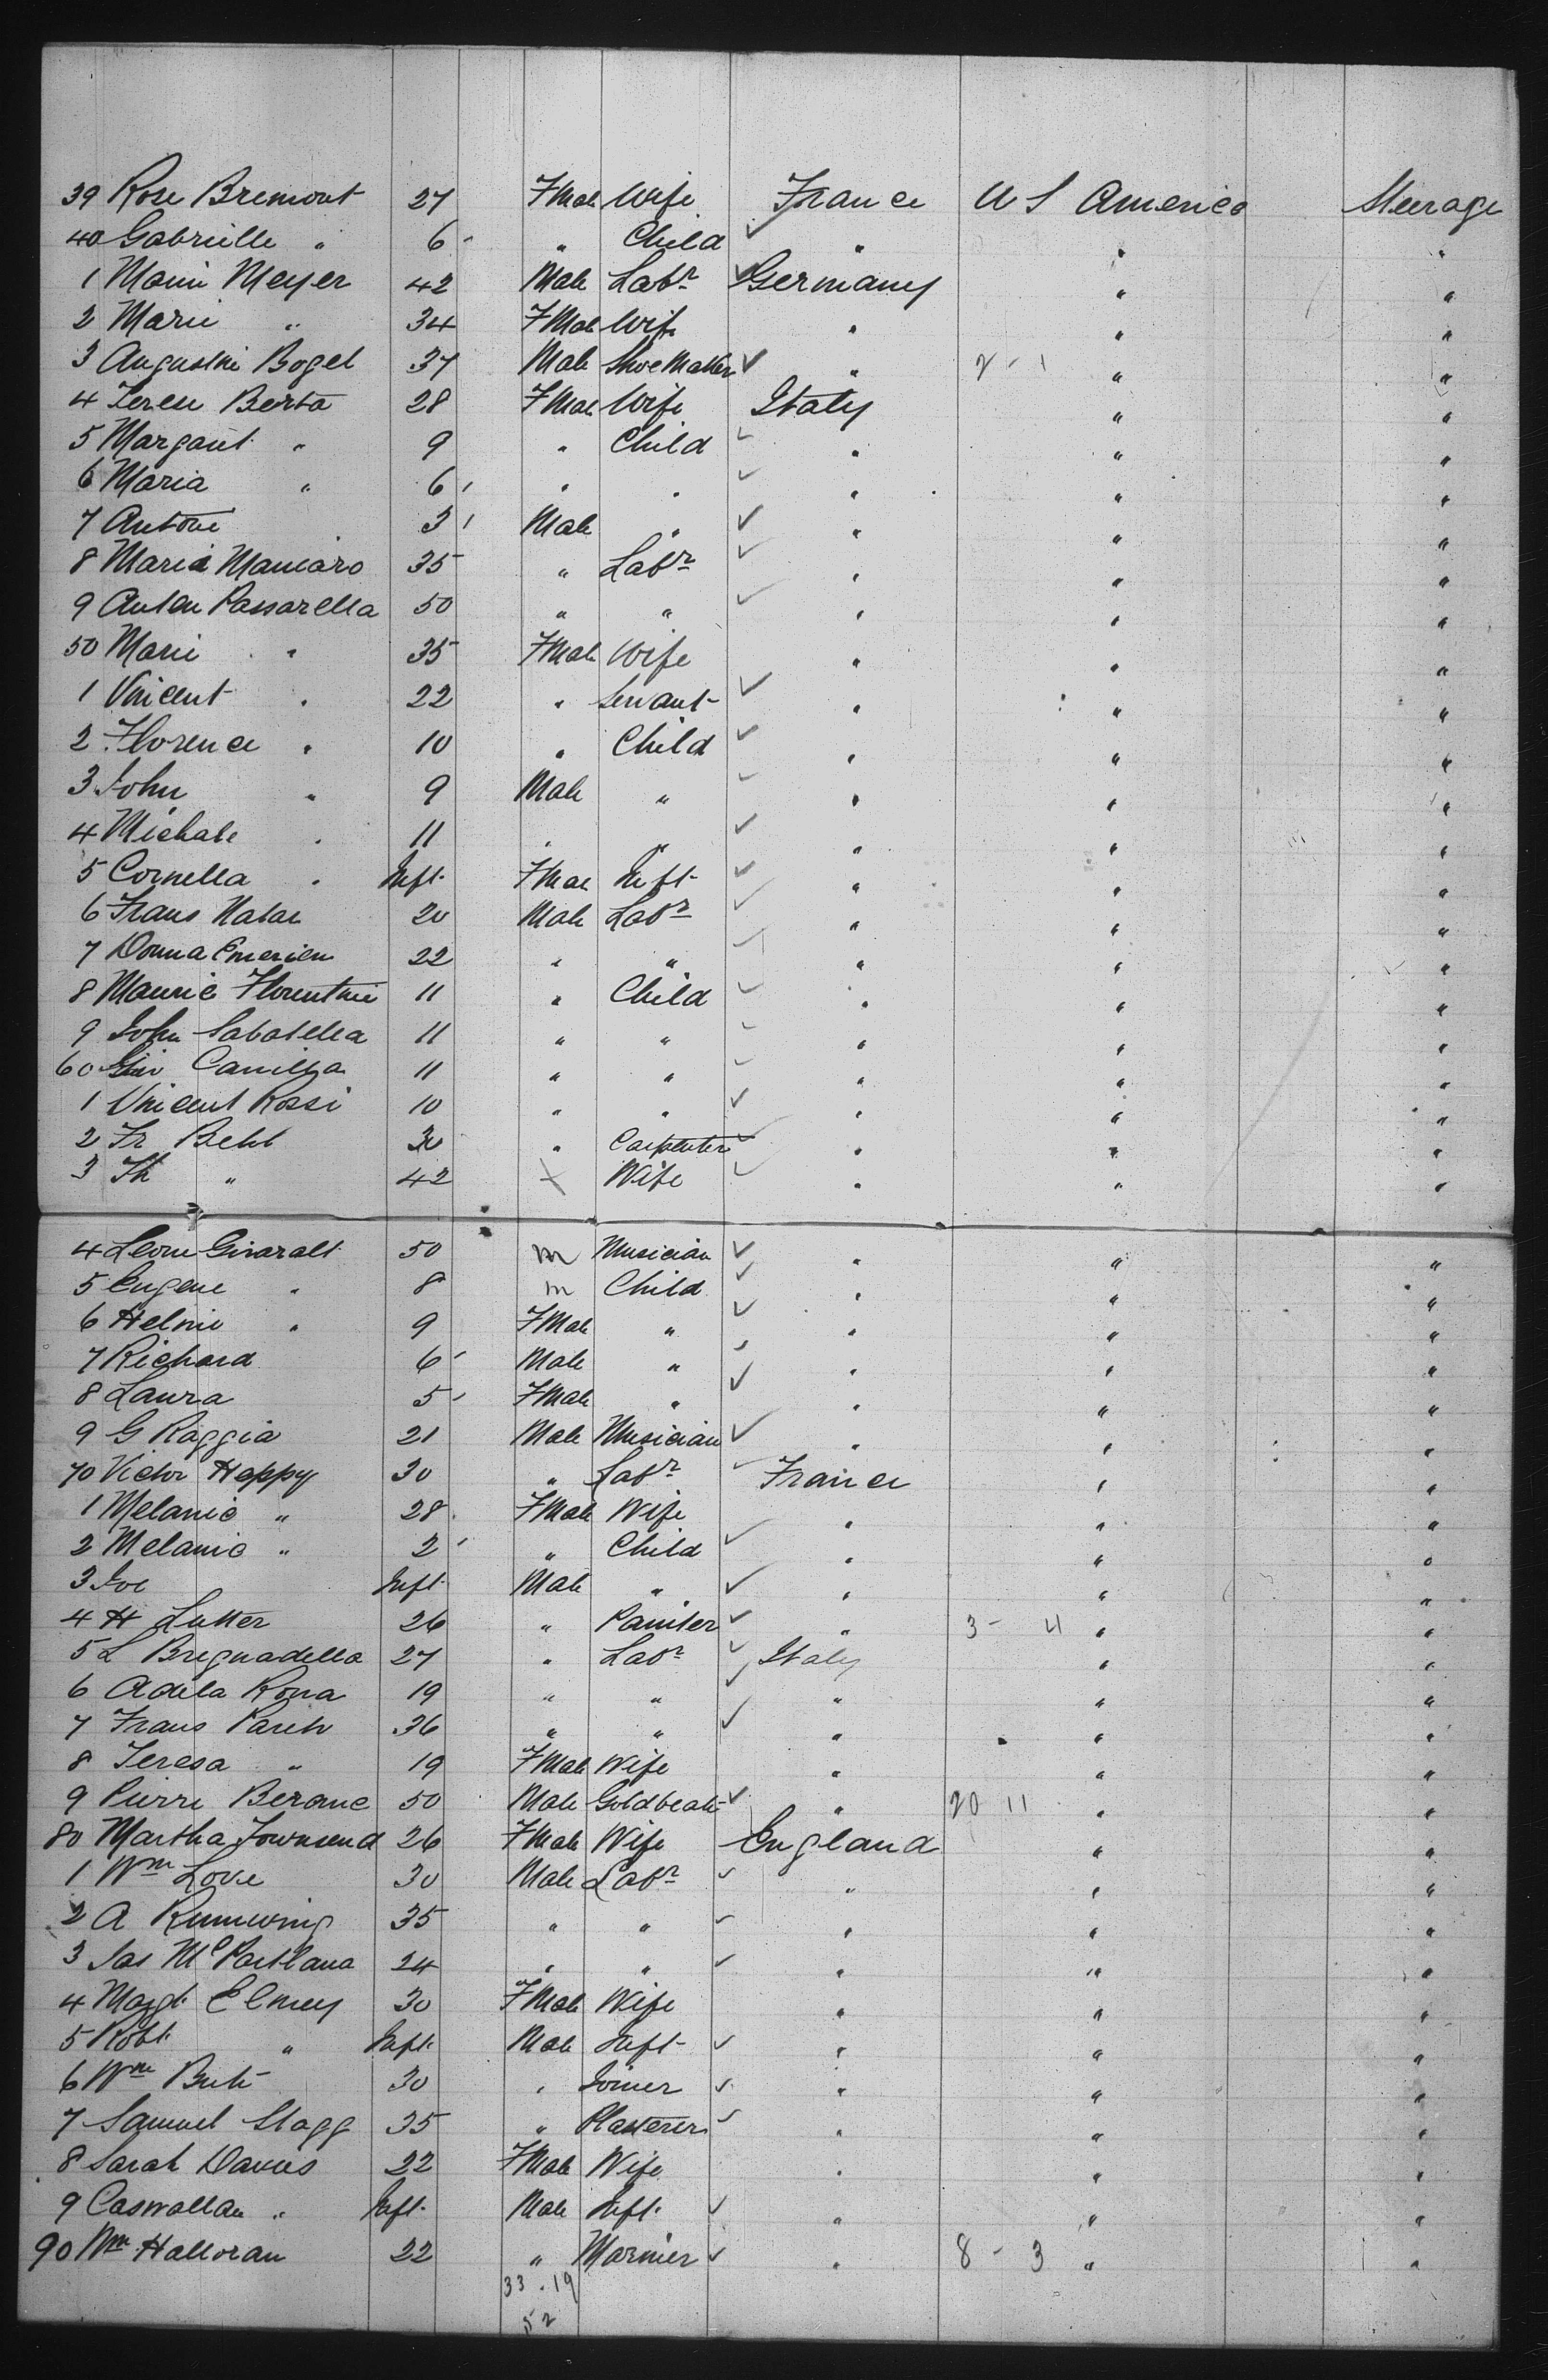 39 Rose Bremont 27 FMale Wife France U S America Steerage
40 Gabrielle " 6 " Child " " "
1 Meyer 42 Male Labr Germany " "
2 Marie " 34 FMale Wife " " "
3 Bogel 37 Male ShoeMaker " 2 - 1 " "
4 Terese Berta 28 FMale Wife Italy " "
5 Margarit " 9 " Child " " "
6 Maria " 6 " " " " "
7 Antoni 3 Male " " " "
8 Maria Maniaro 35 " Labr " " "
9 Anton Passarella 50 " " " " "
50 Marie " 35 FMale Wife " " "
1 Vincent " 22 " Servant " " "
2 Florence " 10 " Child " " "
3 John " 9 Male " " " "
4 Michale " 11 " " " " "
5 Cornella " Inft FMale Inft " " "
6 Frans 20 Male Labr " " "
7 Donna 22 " " " " "
8 11 " Child " " "
9 John Sabatella 11 " " " " "
60 11 " " " " "
1 Vincent Rossi 10 " " " " "
2 Fr 30 " Carpenter " " "
3 Th " 42 + Wife " " "
4 50 m Musician " " "
5 Eugene " 8 m Child " " "
6 " 9 FMale " " " "
7 Richard 6 Male " " " "
8 Laura 5 FMale " " " "
9 G Raggia 21 Male Musician " " "
70 Victor Heppy 30 " Labr France " "
1 Melanie " 28 FMale Wife " " "
2 Melanie " 2 " Child " " "
3 Joe Inft Male " " " "
4 H Lutter 26 " Painter " 3 - 4 " "
5 L Bregnadella 27 " Labr Italy " "
6 Adela Rona 19 " " " " "
7 Frans 36 " " " " "
8 Teresa " 19 FMale Wife " " "
9 Pierre 50 Male Goldbeater " 20 11 " "
80 Martha Townsend 26 FMale Wife England " "
1 Wm Love 30 Male Labr " " "
2 A 35 " " " " "
3 Jas McPartland 24 " " " " "
4 Magt Elmey 30 FMale Wife " " "
5 Robt " Inft Male Inft " " "
6 Wm 30 " Joiner " " "
7 Samuel Stagg 35 " Plasterer " " "
8 Sarah Davies 22 FMale Wife " " "
9 Caswallan " Inft Male Inft " " "
90 Wm Halloran 22 " Mariner " 8 - 3 " "
33 . 19
52